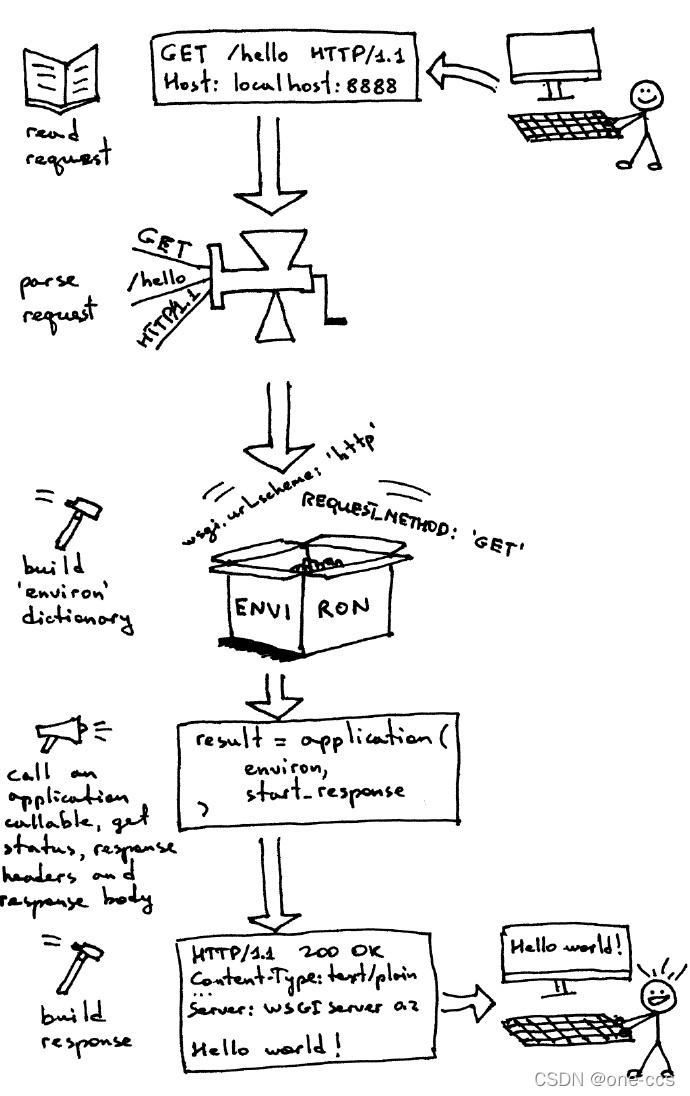 GET /hello HTTP/1.1
Host: localhost:8888
read
request
GET
/hello
HTTP/1.1
parse
request
wsgi.url_scheme: 'http'
REQUEST_METHOD: 'GET'
build
'environ'
dictionary
ENVI RON
result = application(
environ,
start_response
)
call an
application
callable, get
status, response
headers and
response body
HTTP/1.1 200 OK
Content-Type: text/plain
...
Server: WSGI server 0.2
Hello world!
build
response
Hello world!
CSDN @one-ccs